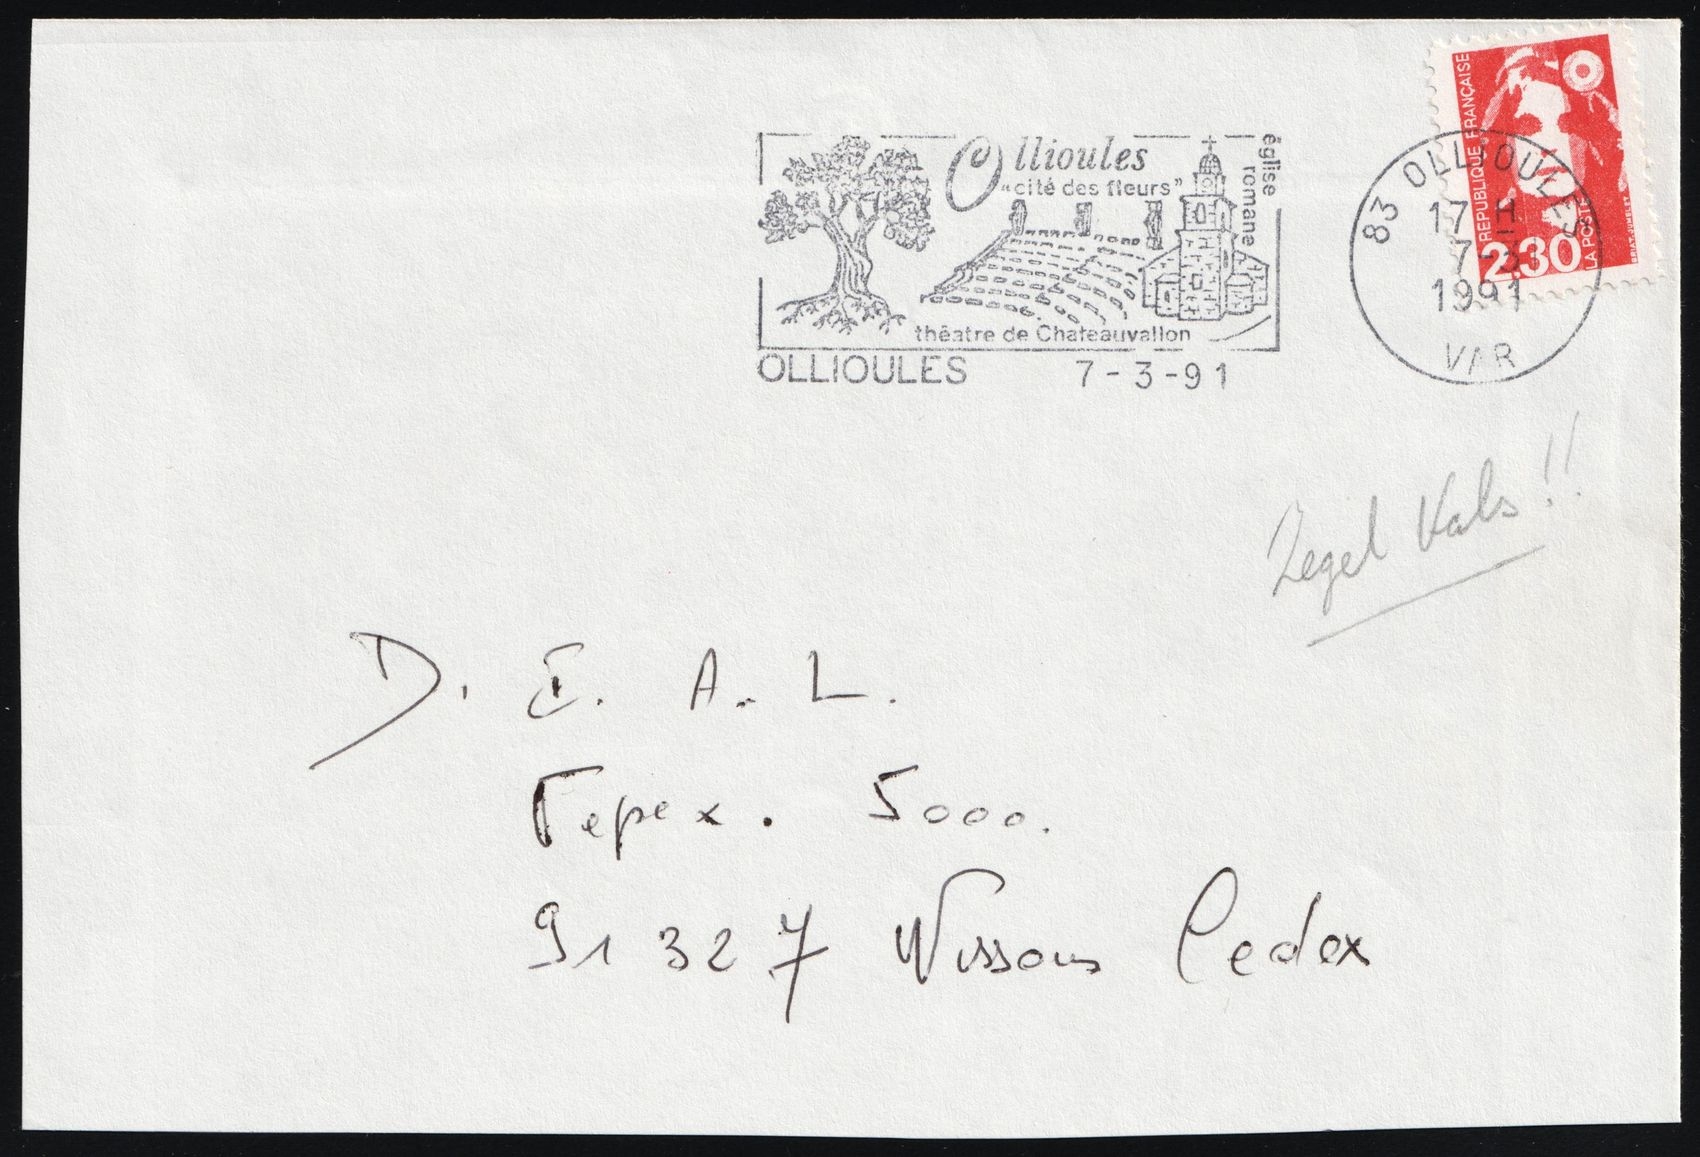 REPUBLIQUE FRANÇAISE
2,30
LA POSTE
BRIAT-JUMELET
83 OLLIOULES
17 H
7-3
1991
VAR
Ollioules
"cité des fleurs"
église romane
théatre de Chateauvallon
OLLIOULES 7-3-91
Zegel Vals!!
D. E. A. L.
Tepex. 5000.
91 327 Wissous Cedex